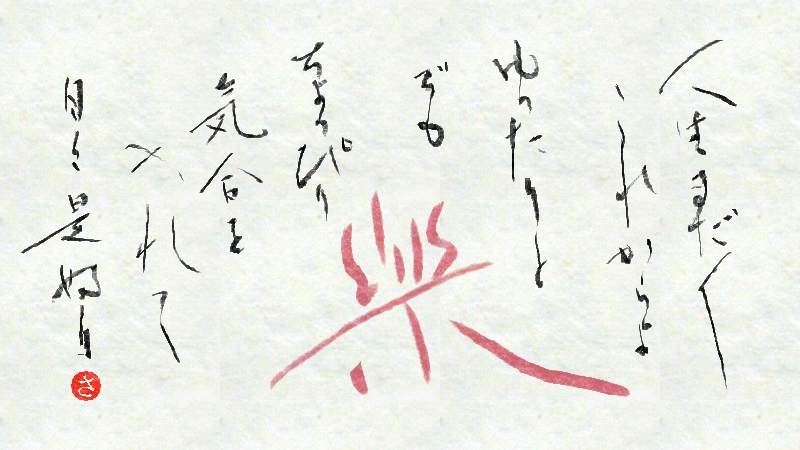 人生まだ〱
これからよ
ゆったりと
でも
ちょっぴり
気合を
入れて
日々是好日
さ
楽